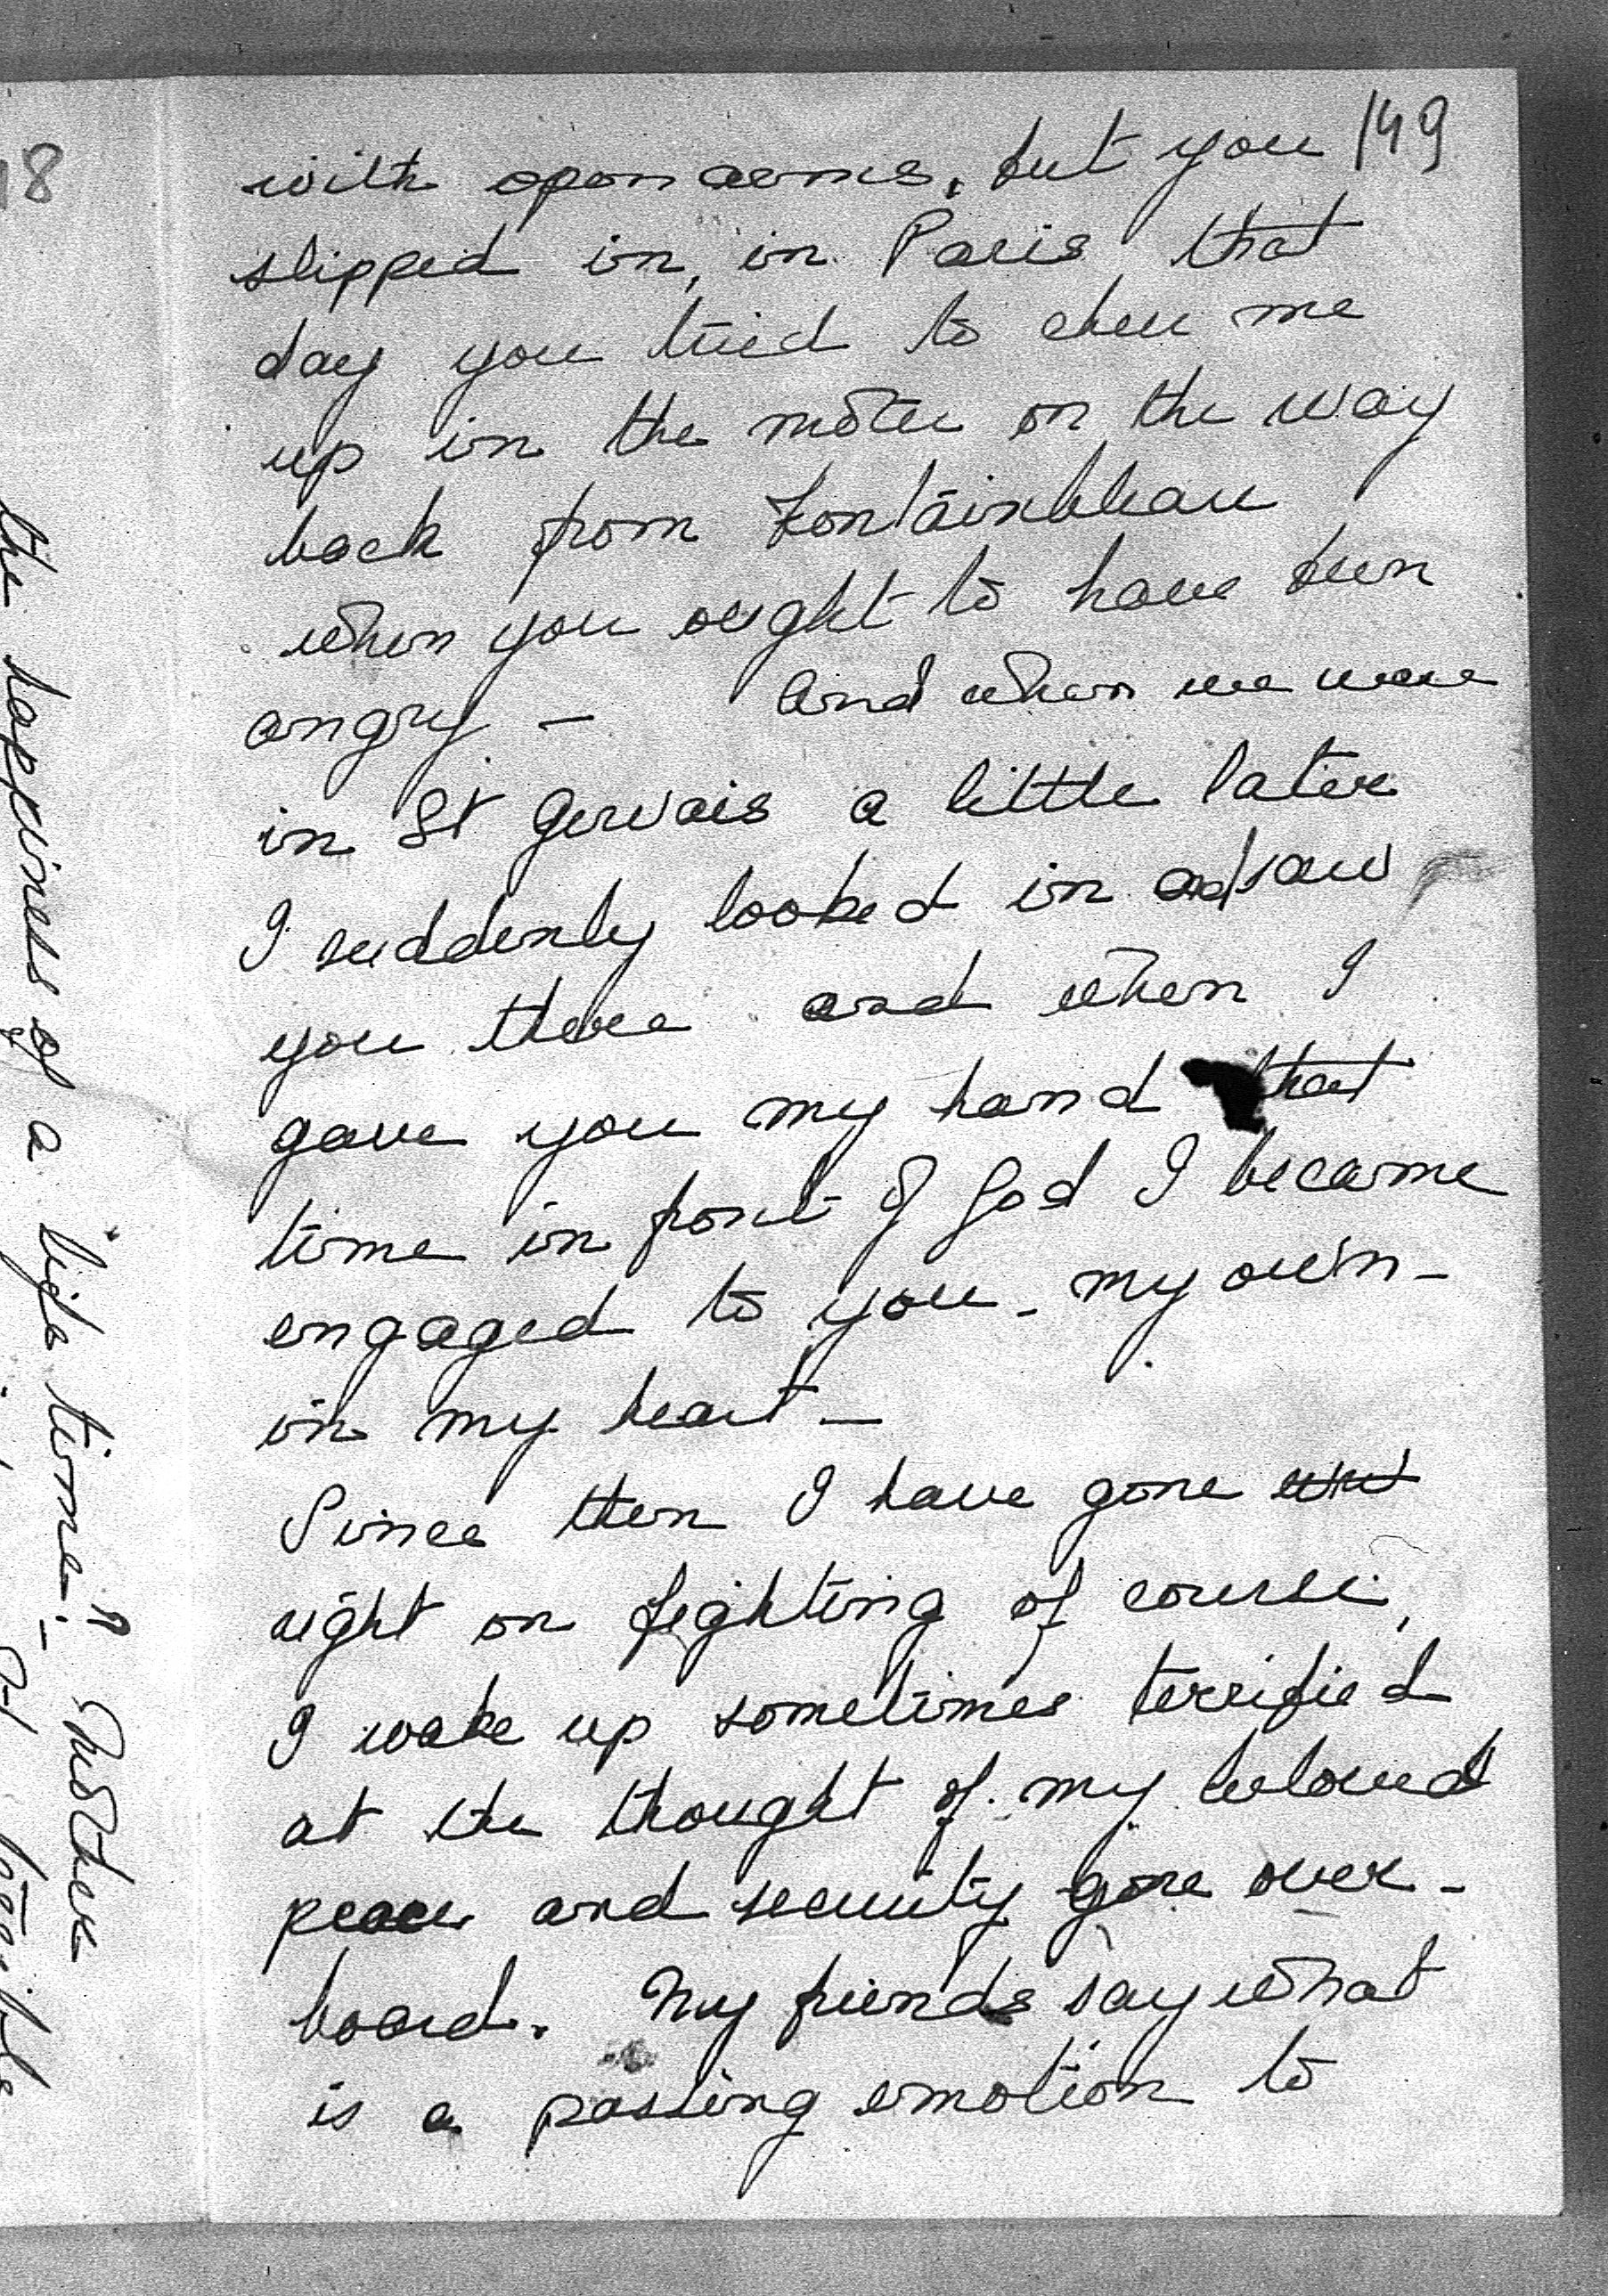 149
with open arms, but you
slipped in, in Paris, that
day you tried to cheer me
up in the motor on the way
back from Fontainbleau
when you ought to have been
angry – And when we were
in St Gervais a little later
I suddenly looked in and saw
you there and when I
gave you my hand that
time in front of God I became
engaged to you – my own –
in my heart –
Since then I have gone
right on fighting of course,
I wake up sometimes terrified
at the thought of my beloved
peace and security gone over-
board. My friends say what
is a passing emotion to
18
the happiness of a life time? –